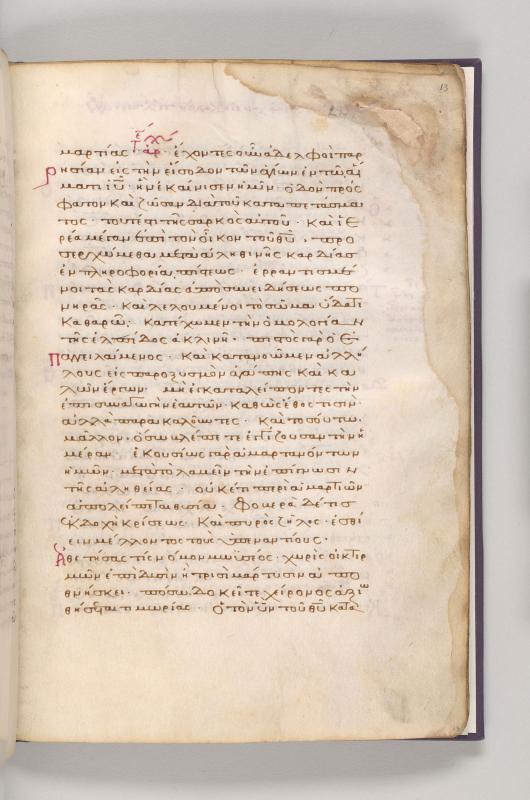 13
μαρτίας· ἔχοντες οὖν ἀδελφοὶ παρ
ρησίαν εἰς τὴν εἴσοδον τῶν ἁγίων ἐν τῷ αἵ
ματι ιυ· ἣν ἐκαίνισεν ἡμῖν· ὁδὸν πρόσ
φατον καὶ ζῶσαν διὰ τοῦ καταπετάσμα
τος· τουτέστι τῆς σαρκὸς αὐτοῦ· καὶ ἱε
ρέα μέγαν ἐπὶ τὸν οἶκον τοῦ θυ· προ
σερχώμεθα μετὰ ἀληθινῆς καρδίας
ἐν πληροφορίᾳ πίστεως· ἐρραντισμέ
νοι τὰς καρδίας ἀπὸ συνειδήσεως πο
νηρᾶς· καὶ λελουμένοι τὸ σῶμα ὕδατι
καθαρῷ· κατέχωμεν τὴν ὁμολογίαν
τῆς ἐλπίδος ἀκλινῆ· πιστὸς γὰρ ὁ ἐ
παγγειλάμενος· καὶ κατανοῶμεν ἀλλή
λους εἰς παροξυσμὸν ἀγάπης καὶ κα
λῶν ἔργων· μὴ ἐγκαταλείποντες τὴν
ἐπισυναγωγὴν ἑαυτῶν· καθὼς ἔθος τισίν·
ἀλλὰ παρακαλοῦντες· καὶ τοσούτω
μᾶλλον· ὅσω βλέπετε ἐγγίζουσαν τὴν ἡ
μέραν· ἑκουσίως γὰρ ἁμαρτανόντων
ἡμῶν· μετὰ τὸ λαβεῖν τὴν ἐπίγνωσιν
τῆς ἀληθείας· οὐκέτι περὶ ἁμαρτιῶν
ἀπολείπεται θυσία· φοβερὰ δέ τις
ἐκδοχὴ κρίσεως· καὶ πυρὸς ζῆλος· ἐσθί
ειν μέλλοντος τοὺς ὑπεναντίους·
ἀθετήσας τις νόμον μωϋσέος· χωρὶς οἰκτιρ
μῶν ἐπὶ δυσὶν ἢ τρισὶ μάρτυσιν ἀπο
θνήσκει· πόσω δοκεῖτε χείρονος ἀξιω
θήσεται τιμωρίας· ὁ τὸν υν τοῦ θυ κατα